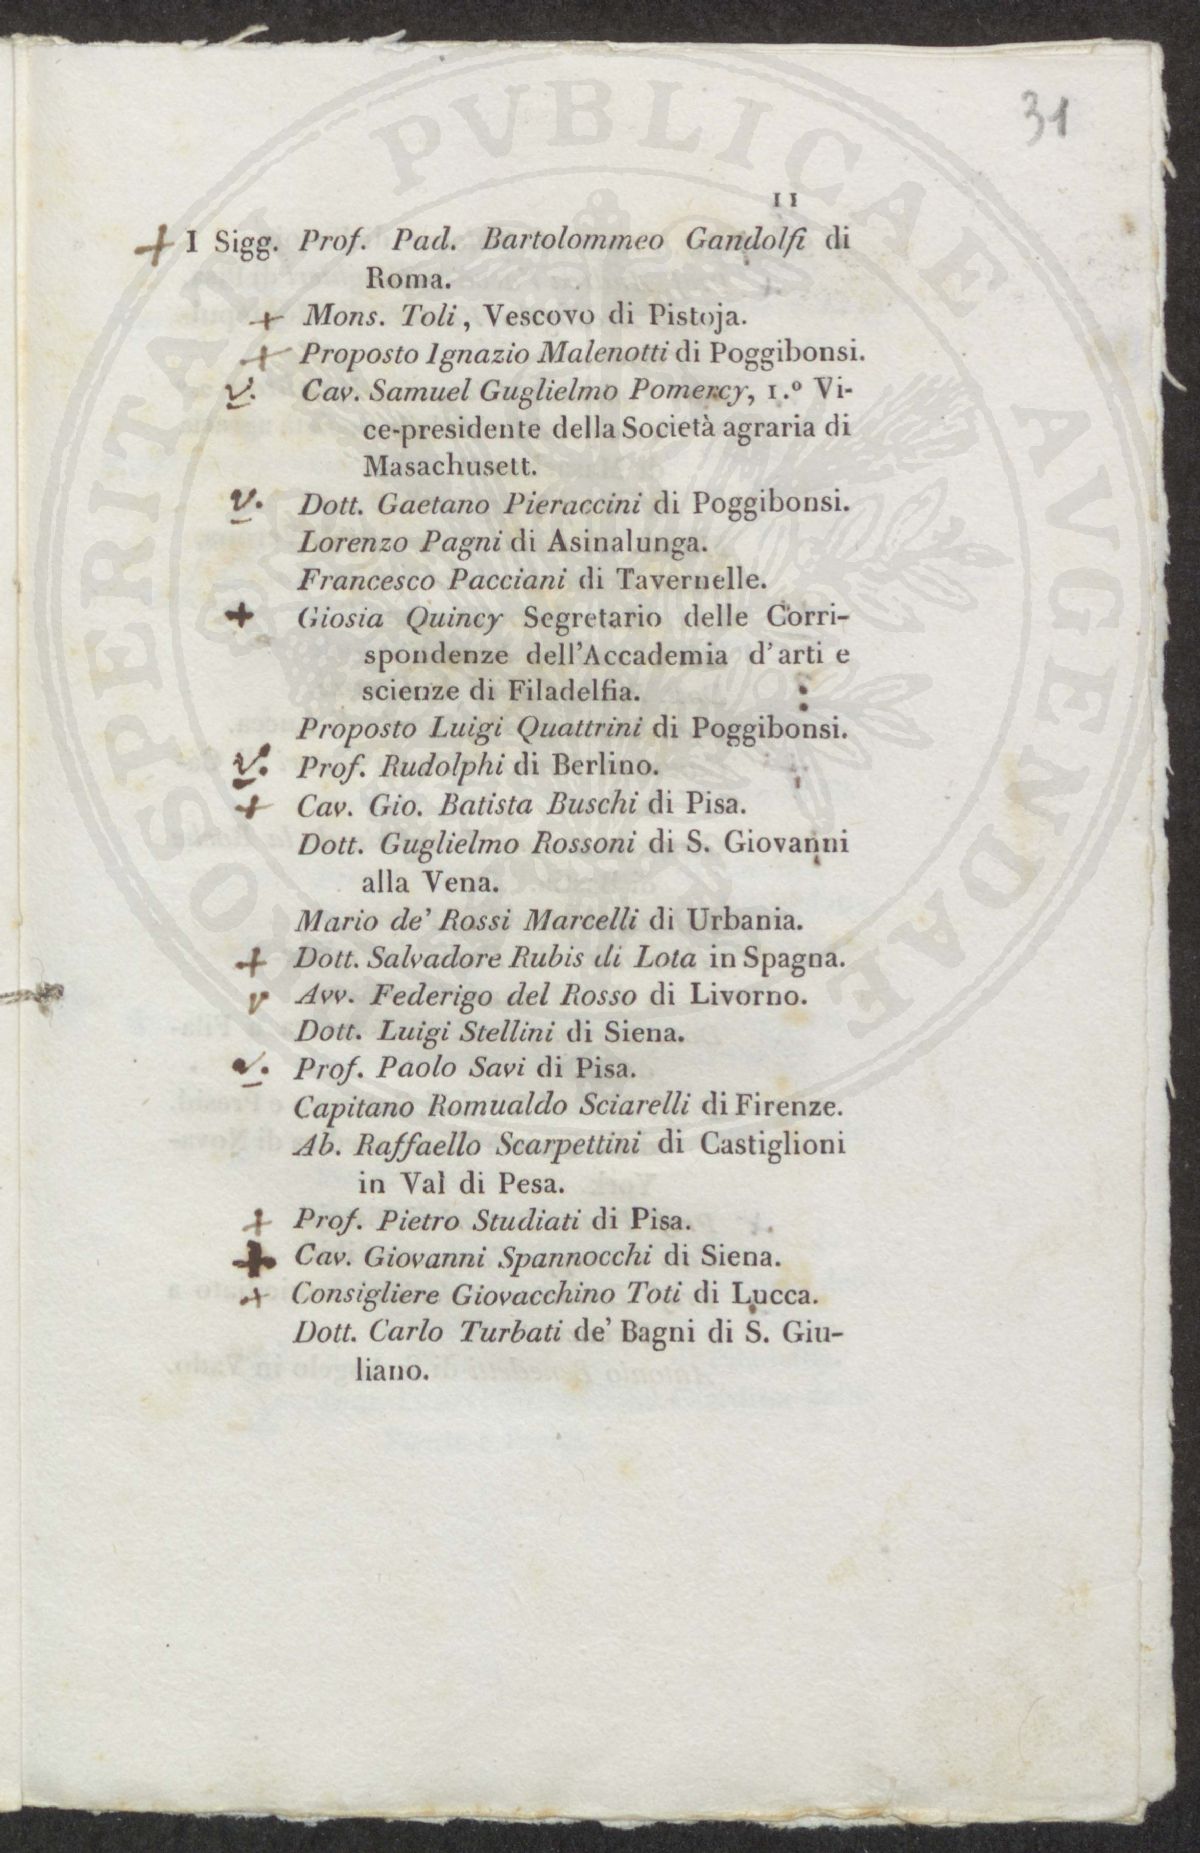 31
11
+ I Sigg. Prof. Pad. Bartolommeo Gandolfi di
Roma.
+ Mons. Toli, Vescovo di Pistoja.
+ Proposto Ignazio Malenotti di Poggibonsi.
v. Cav. Samuel Guglielmo Pomercy, 1.º Vi-
ce-presidente della Società agraria di
Masachusett.
v. Dott. Gaetano Pieraccini di Poggibonsi.
Lorenzo Pagni di Asinalunga.
Francesco Pacciani di Tavernelle.
+ Giosia Quincy Segretario delle Corri-
spondenze dell'Accademia d'arti e
scienze di Filadelfia.
Proposto Luigi Quattrini di Poggibonsi.
v. Prof. Rudolphi di Berlino.
+ Cav. Gio. Batista Buschi di Pisa.
Dott. Guglielmo Rossoni di S. Giovanni
alla Vena.
Mario de' Rossi Marcelli di Urbania.
+ Dott. Salvadore Rubis di Lota in Spagna.
v Avv. Federigo del Rosso di Livorno.
Dott. Luigi Stellini di Siena.
v. Prof. Paolo Savi di Pisa.
Capitano Romualdo Sciarelli di Firenze.
Ab. Raffaello Scarpettini di Castiglioni
in Val di Pesa.
+ Prof. Pietro Studiati di Pisa.
+ Cav. Giovanni Spannocchi di Siena.
+ Consigliere Giovacchino Toti di Lucca.
Dott. Carlo Turbati de' Bagni di S. Giu-
liano.
PROSPERITATI PVBLICAE AVGENDAE